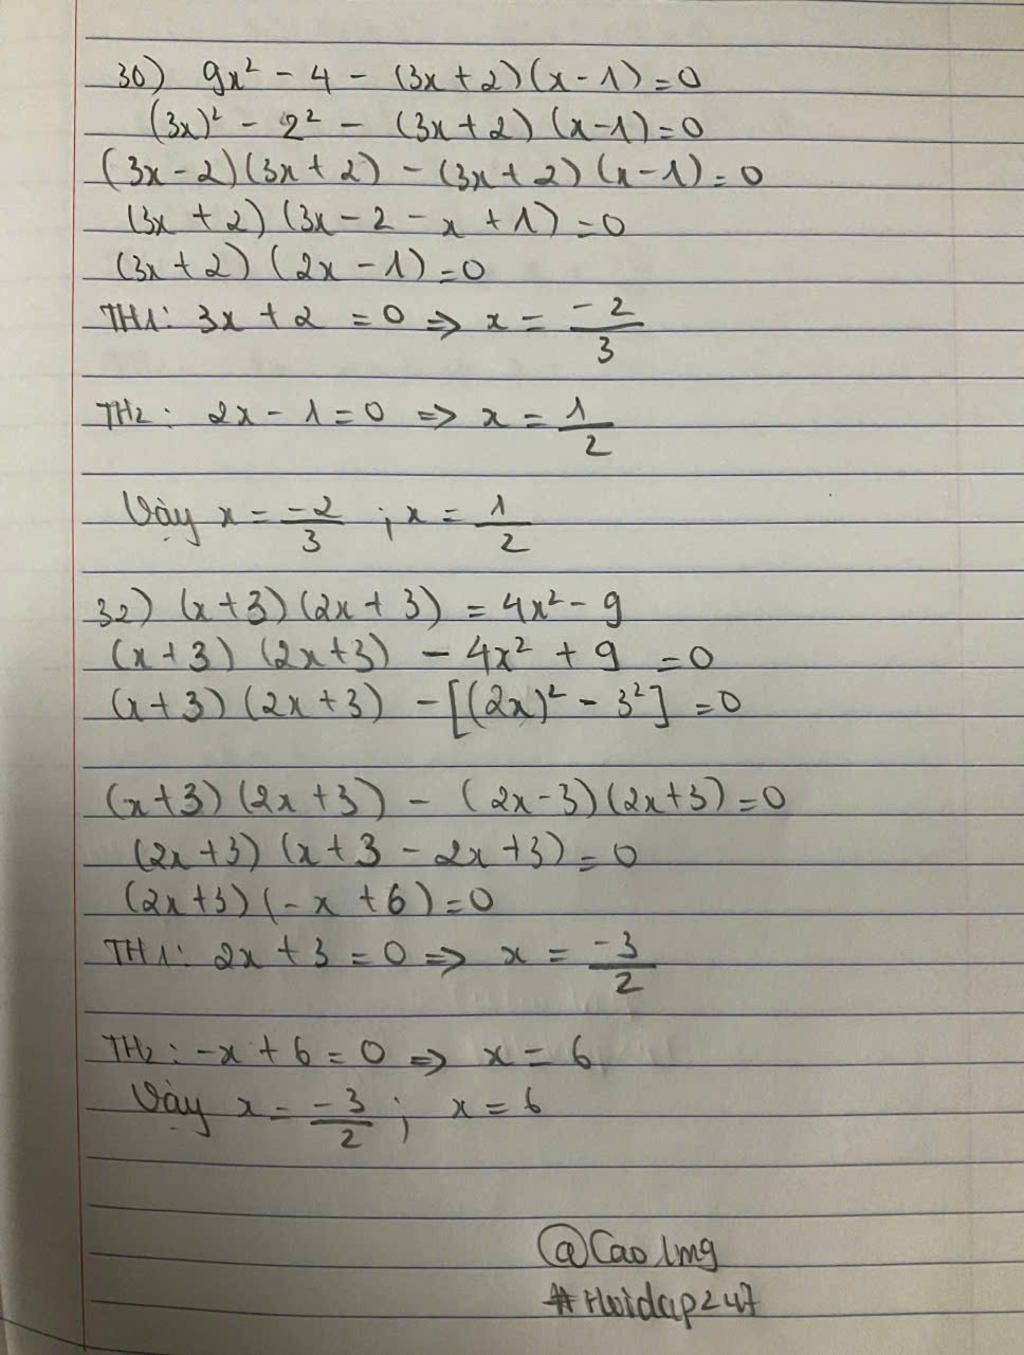 30) 9x² - 4 - (3x+2)(x-1)=0
(3x)² - 2² - (3x+2)(x-1)=0
(3x-2)(3x+2) - (3x+2)(x-1)=0
(3x+2)(3x-2-x+1)=0
(3x+2)(2x-1)=0
TH1: 3x+2=0 => x = -2/3
TH2: 2x-1=0 => x = 1/2
Vậy x = -2/3 ; x = 1/2
32) (x+3)(2x+3) = 4x² - 9
(x+3)(2x+3) - 4x² + 9 = 0
(x+3)(2x+3) - [(2x)² - 3²] = 0
(x+3)(2x+3) - (2x-3)(2x+3)=0
(2x+3)(x+3-2x+3)=0
(2x+3)(-x+6)=0
TH1: 2x+3=0 => x = -3/2
TH2: -x+6=0 => x=6
Vậy x = -3/2 ; x=6
@Cao lmg
#Hoidap247